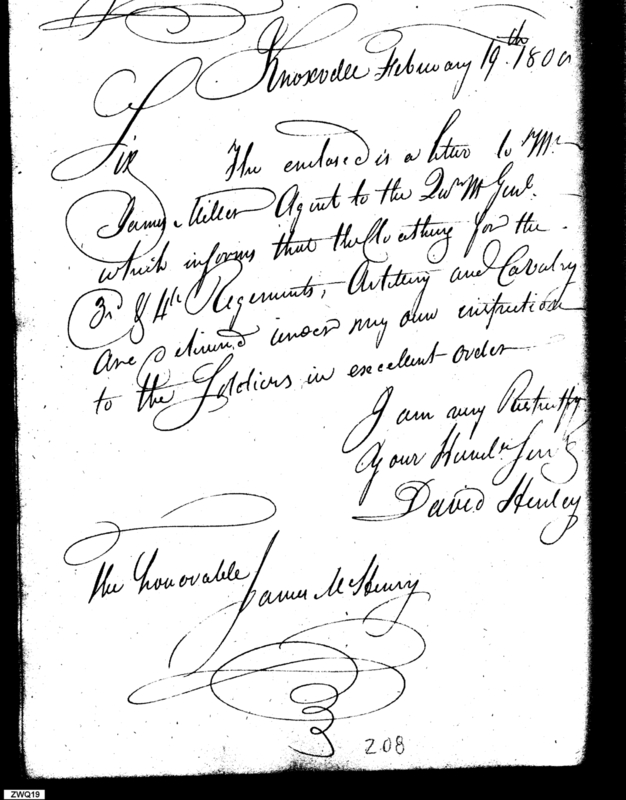 Knoxville February 19th 1800
Sir The enclosed is a letter to Mr
James Miller Agent to the Qur M Genl.
which informs that the Cloathing for the
3d & 4th Regements, Artillery and Cavalry
are delivered under my own inspection
to the Soldiers in excellent order
I am very Respectfly
Your Humle Serv
David Henley
The Honorable
James McHenry
208
ZWQ19